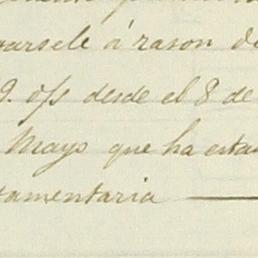 arsele á rason de
9. o/s desde el 8 de
Mayo que ha esta
tamentaria